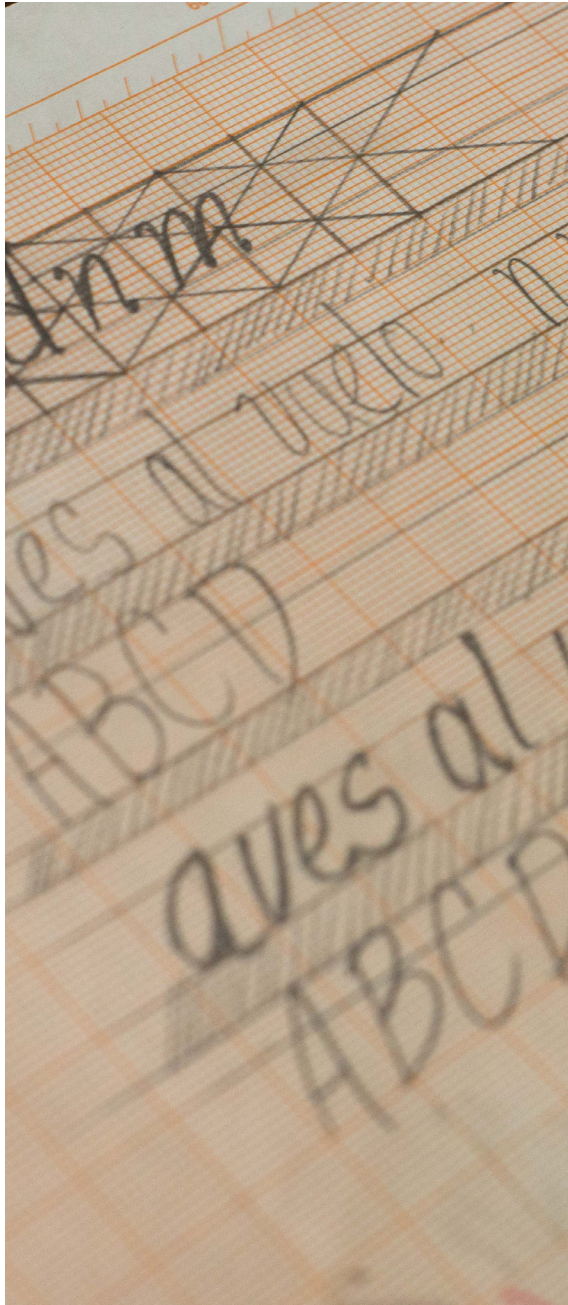 n m
es al vuelo. n
ABCD
aves al
ABCD